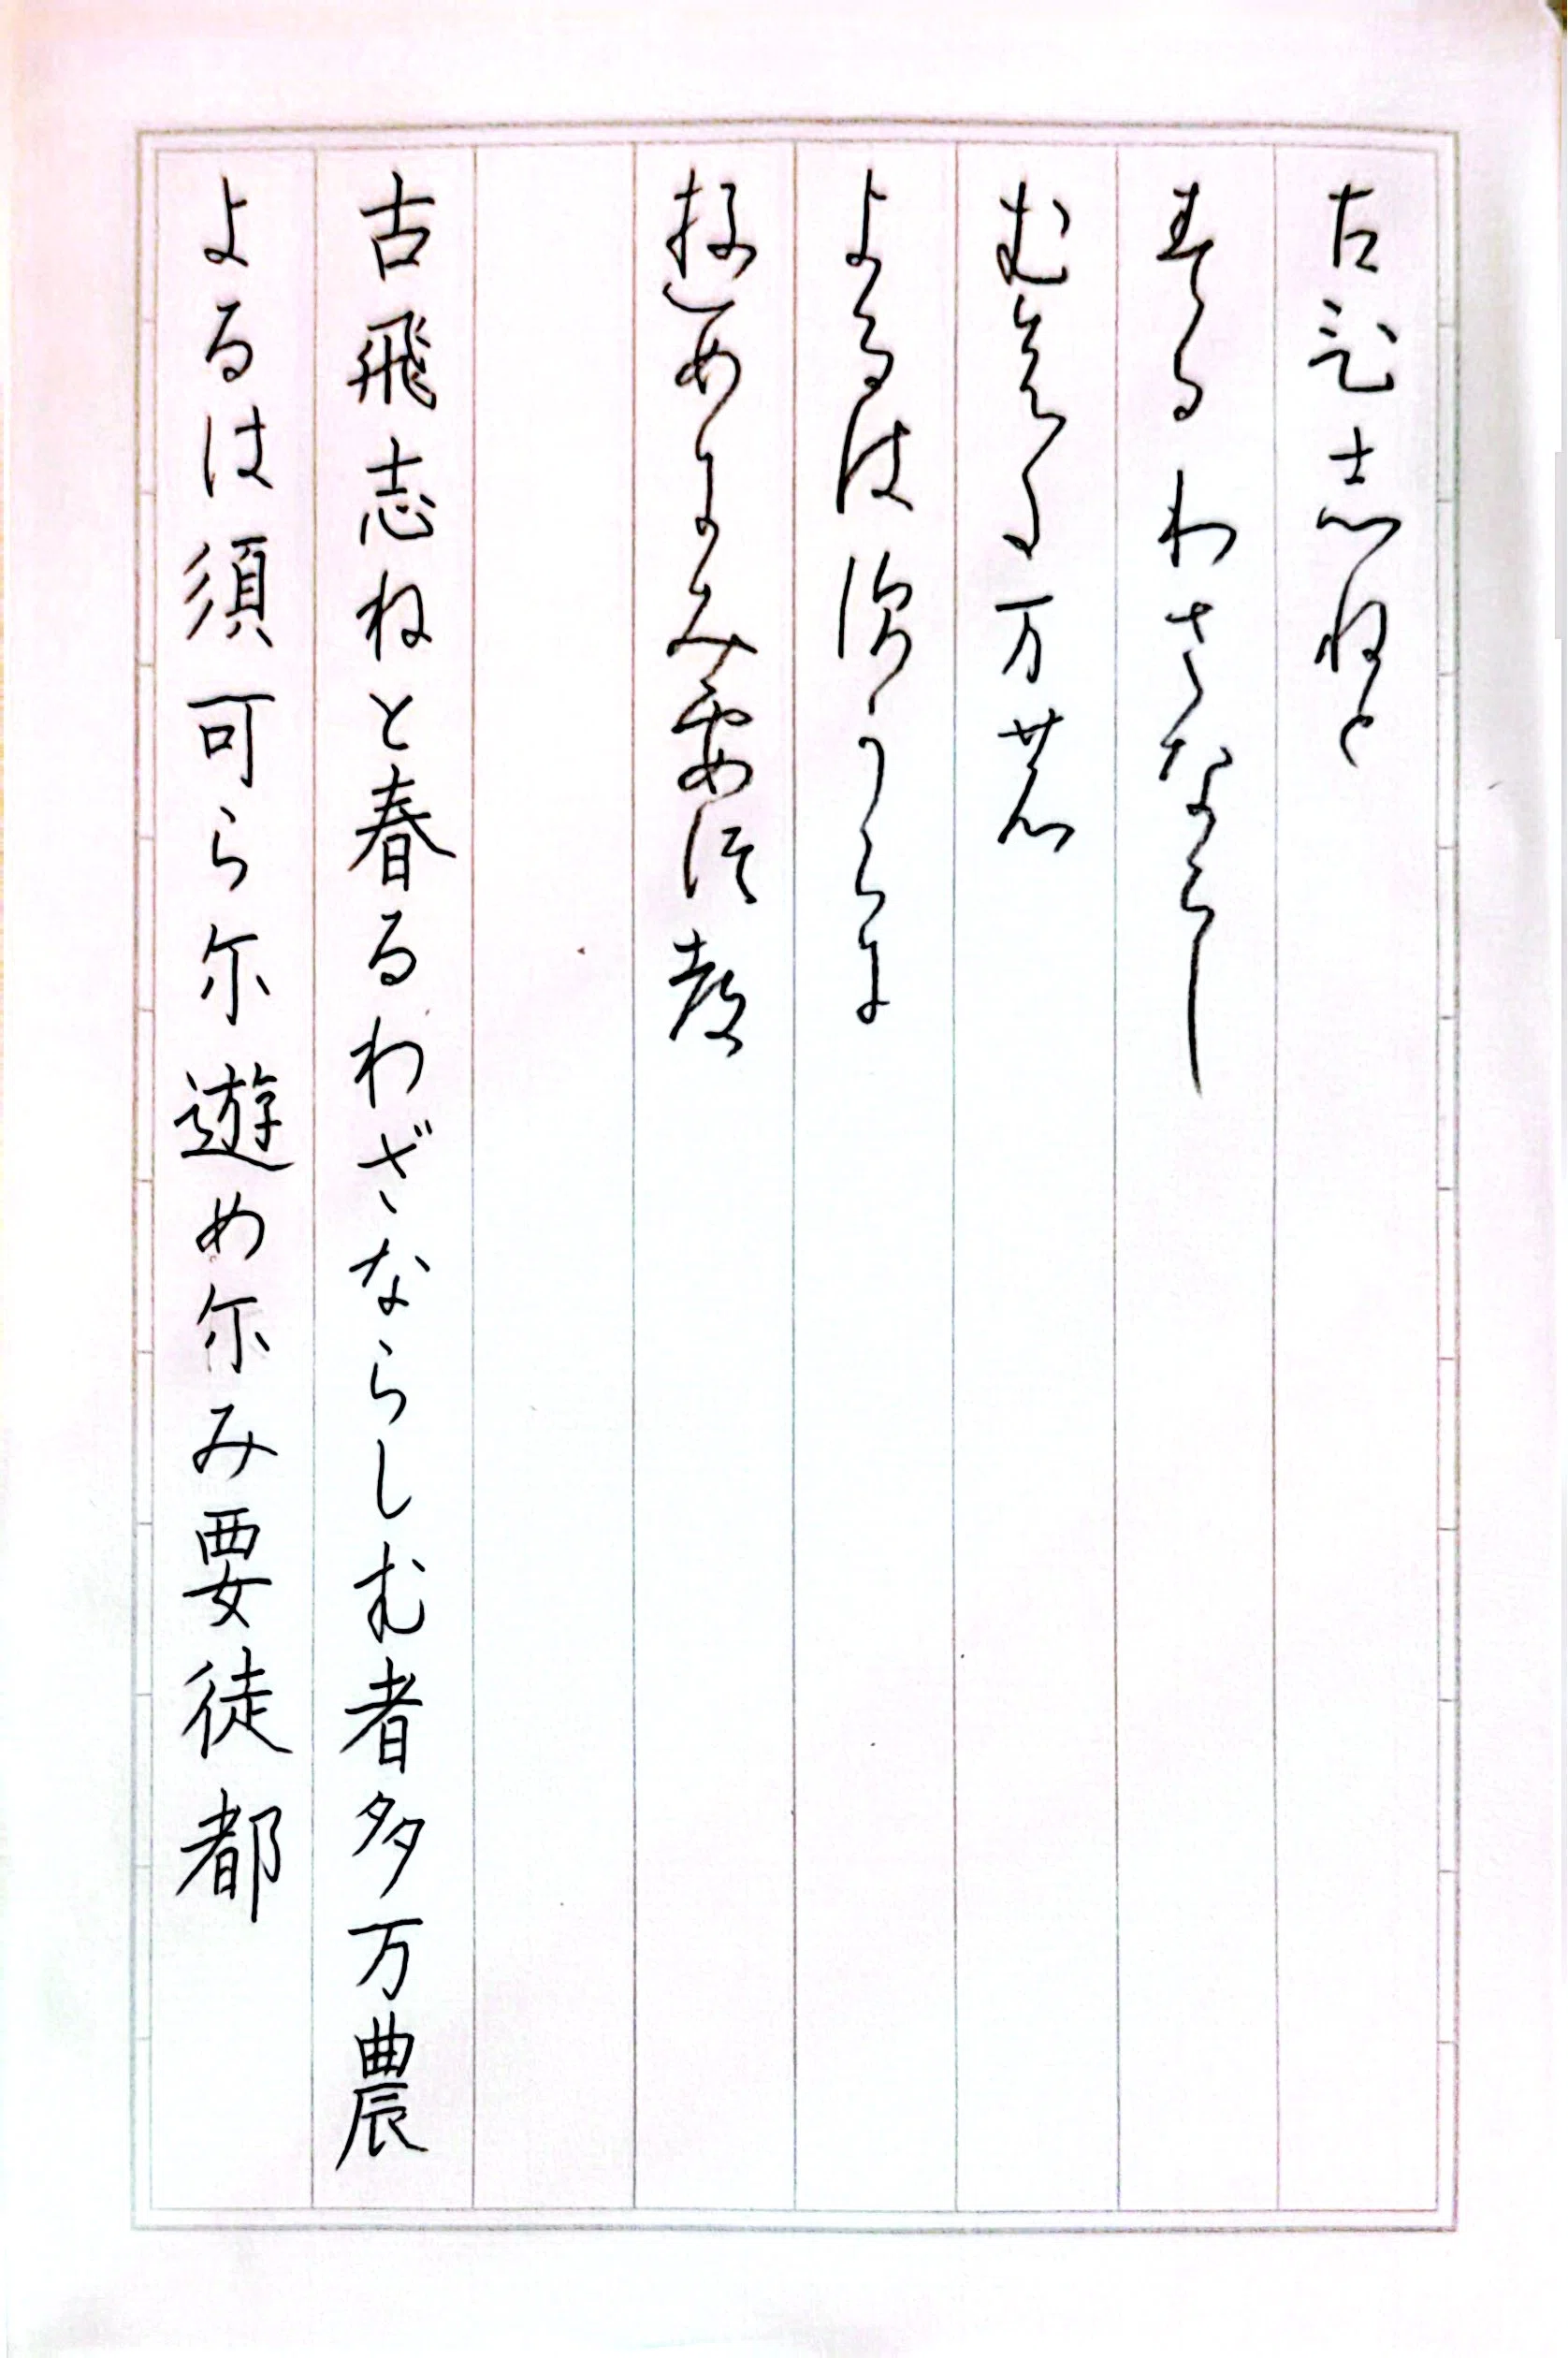 古飛志ねと
春るわさならし
む者多万農
よるは須可ら尓
遊め尓み要徒都
古飛志ねと春るわざならしむ者多万農
よるは須可ら尓遊め尓み要徒都